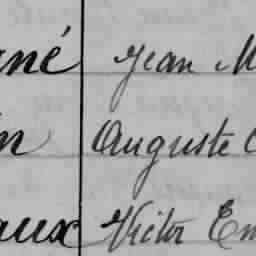 né Jean M
n Auguste C
aux Victor Em